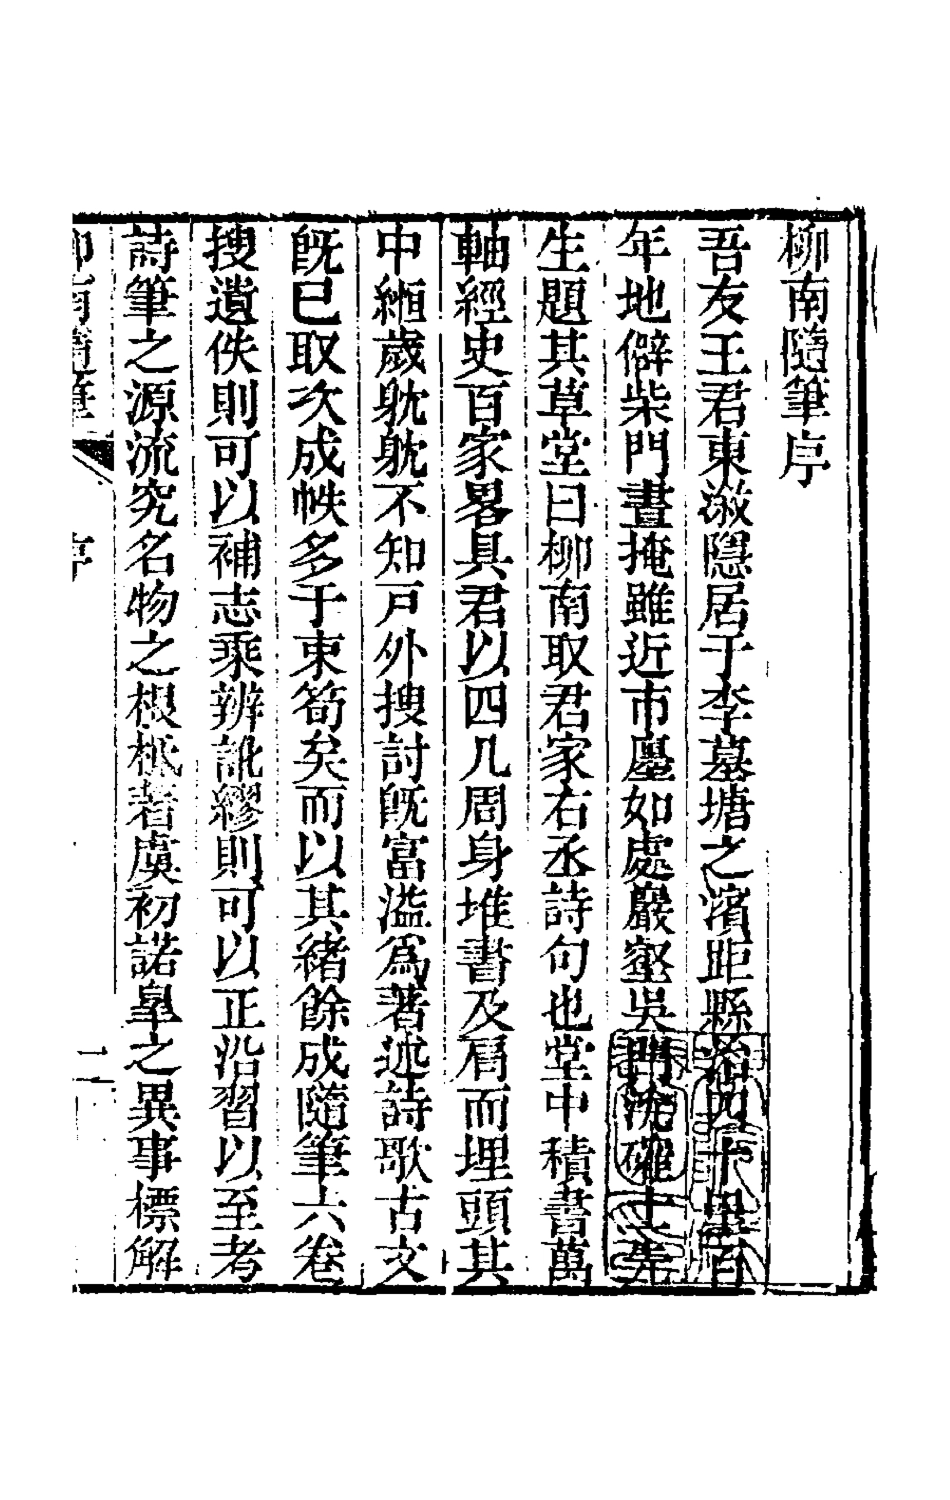 柳南隨筆序
吾友王君東漵隱居于李墓塘之濱距縣治四十里有
年地僻柴門晝掩雖近市廛如處巖壑吳門沈確士先
生題其草堂曰柳南取君家右丞詩句也堂中積書萬
軸經史百家畧具君以四几周身堆書及肩而埋頭其
中緪歲躭躭不知戸外搜討旣富溢爲著述詩歌古文
旣巳取次成帙多于束筍矣而以其緒餘成隨筆六卷
搜遺佚則可以補志乘辨訛繆則可以正沿習以至考
詩筆之源流究名物之根柢著虞初諾皐之異事標解
柳南隨筆 序 二